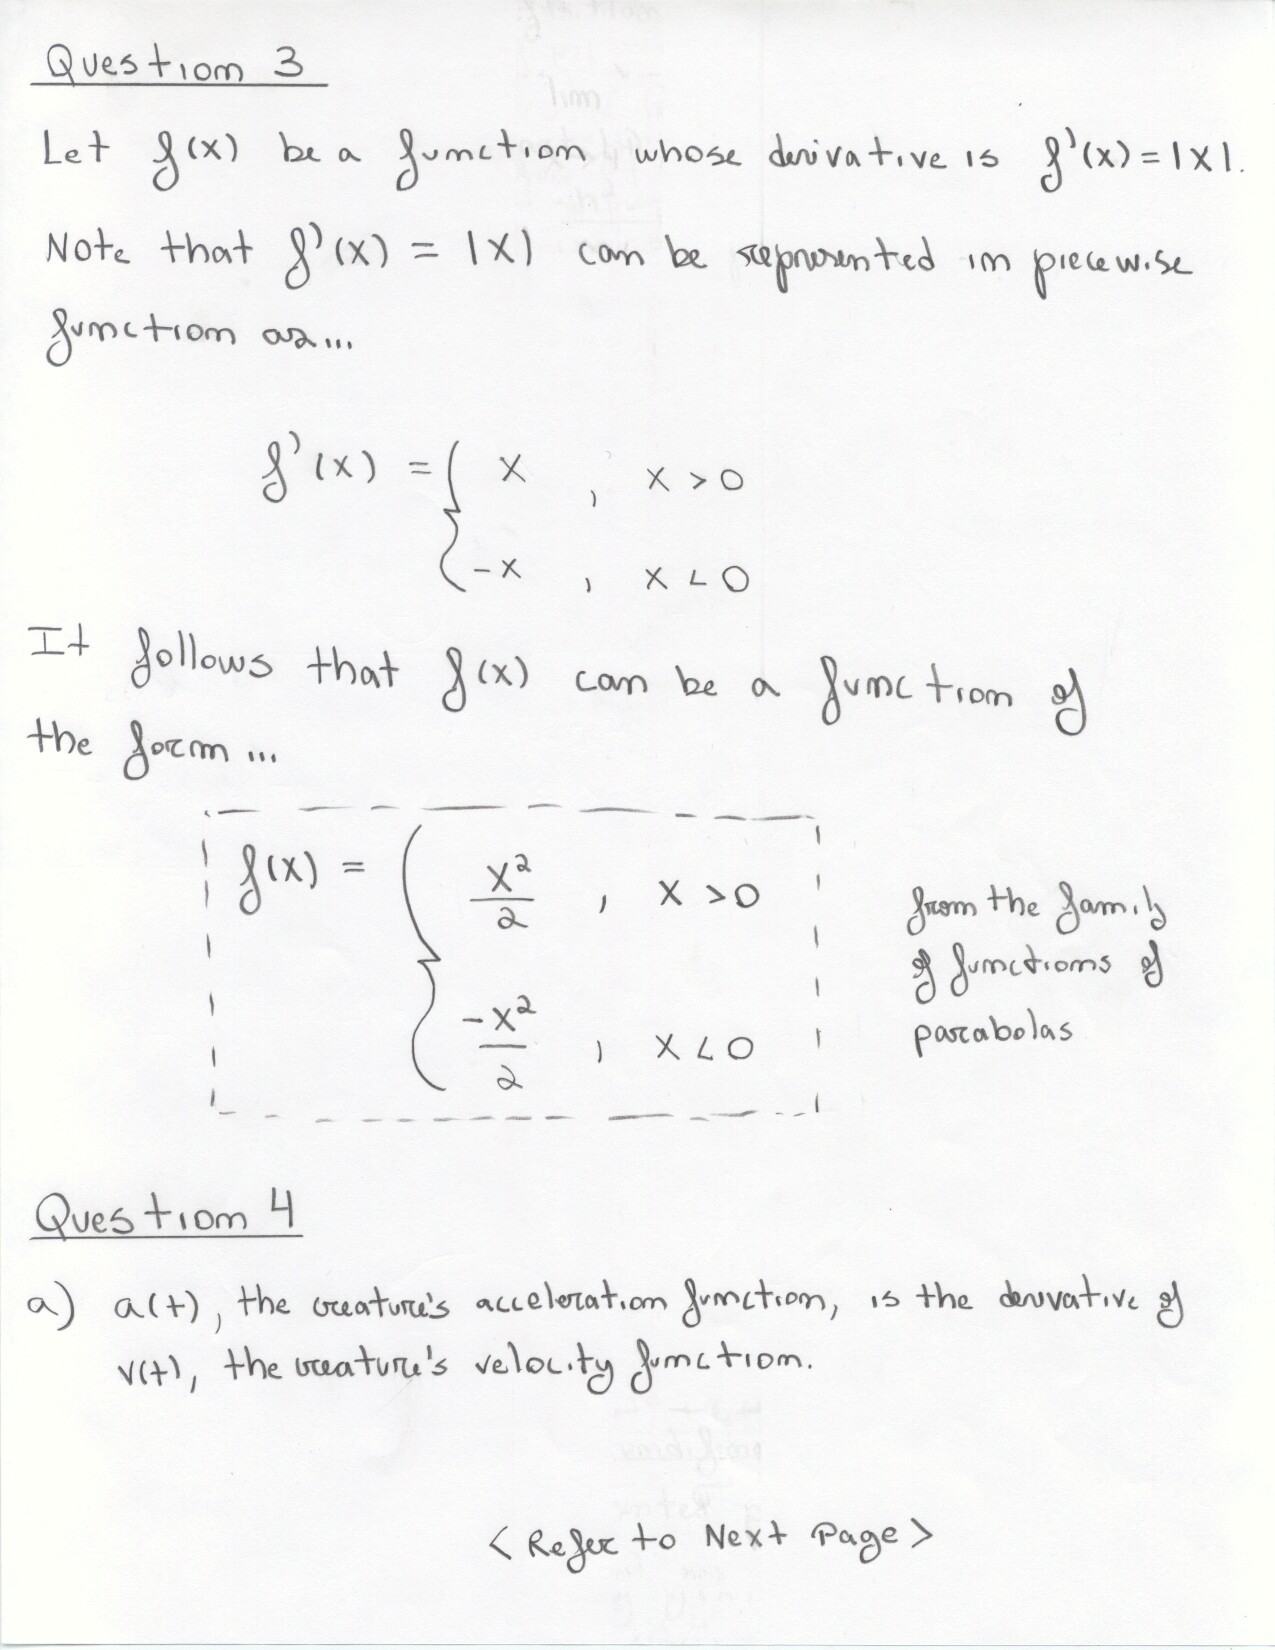 Question 3
Let f(x) be a function whose derivative is f'(x) = |x|.
Note that f'(x) = |x| can be represented in piecewise
function as...
f'(x) = { x , x > 0
-x , x < 0
It follows that f(x) can be a function of
the form ...
f(x) = { x²/2 , x > 0
-x²/2 , x < 0
from the family
of functions of
parabolas
Question 4
a) a(t), the creature's acceleration function, is the derivative of
v(t), the creature's velocity function.
< Refer to Next Page >